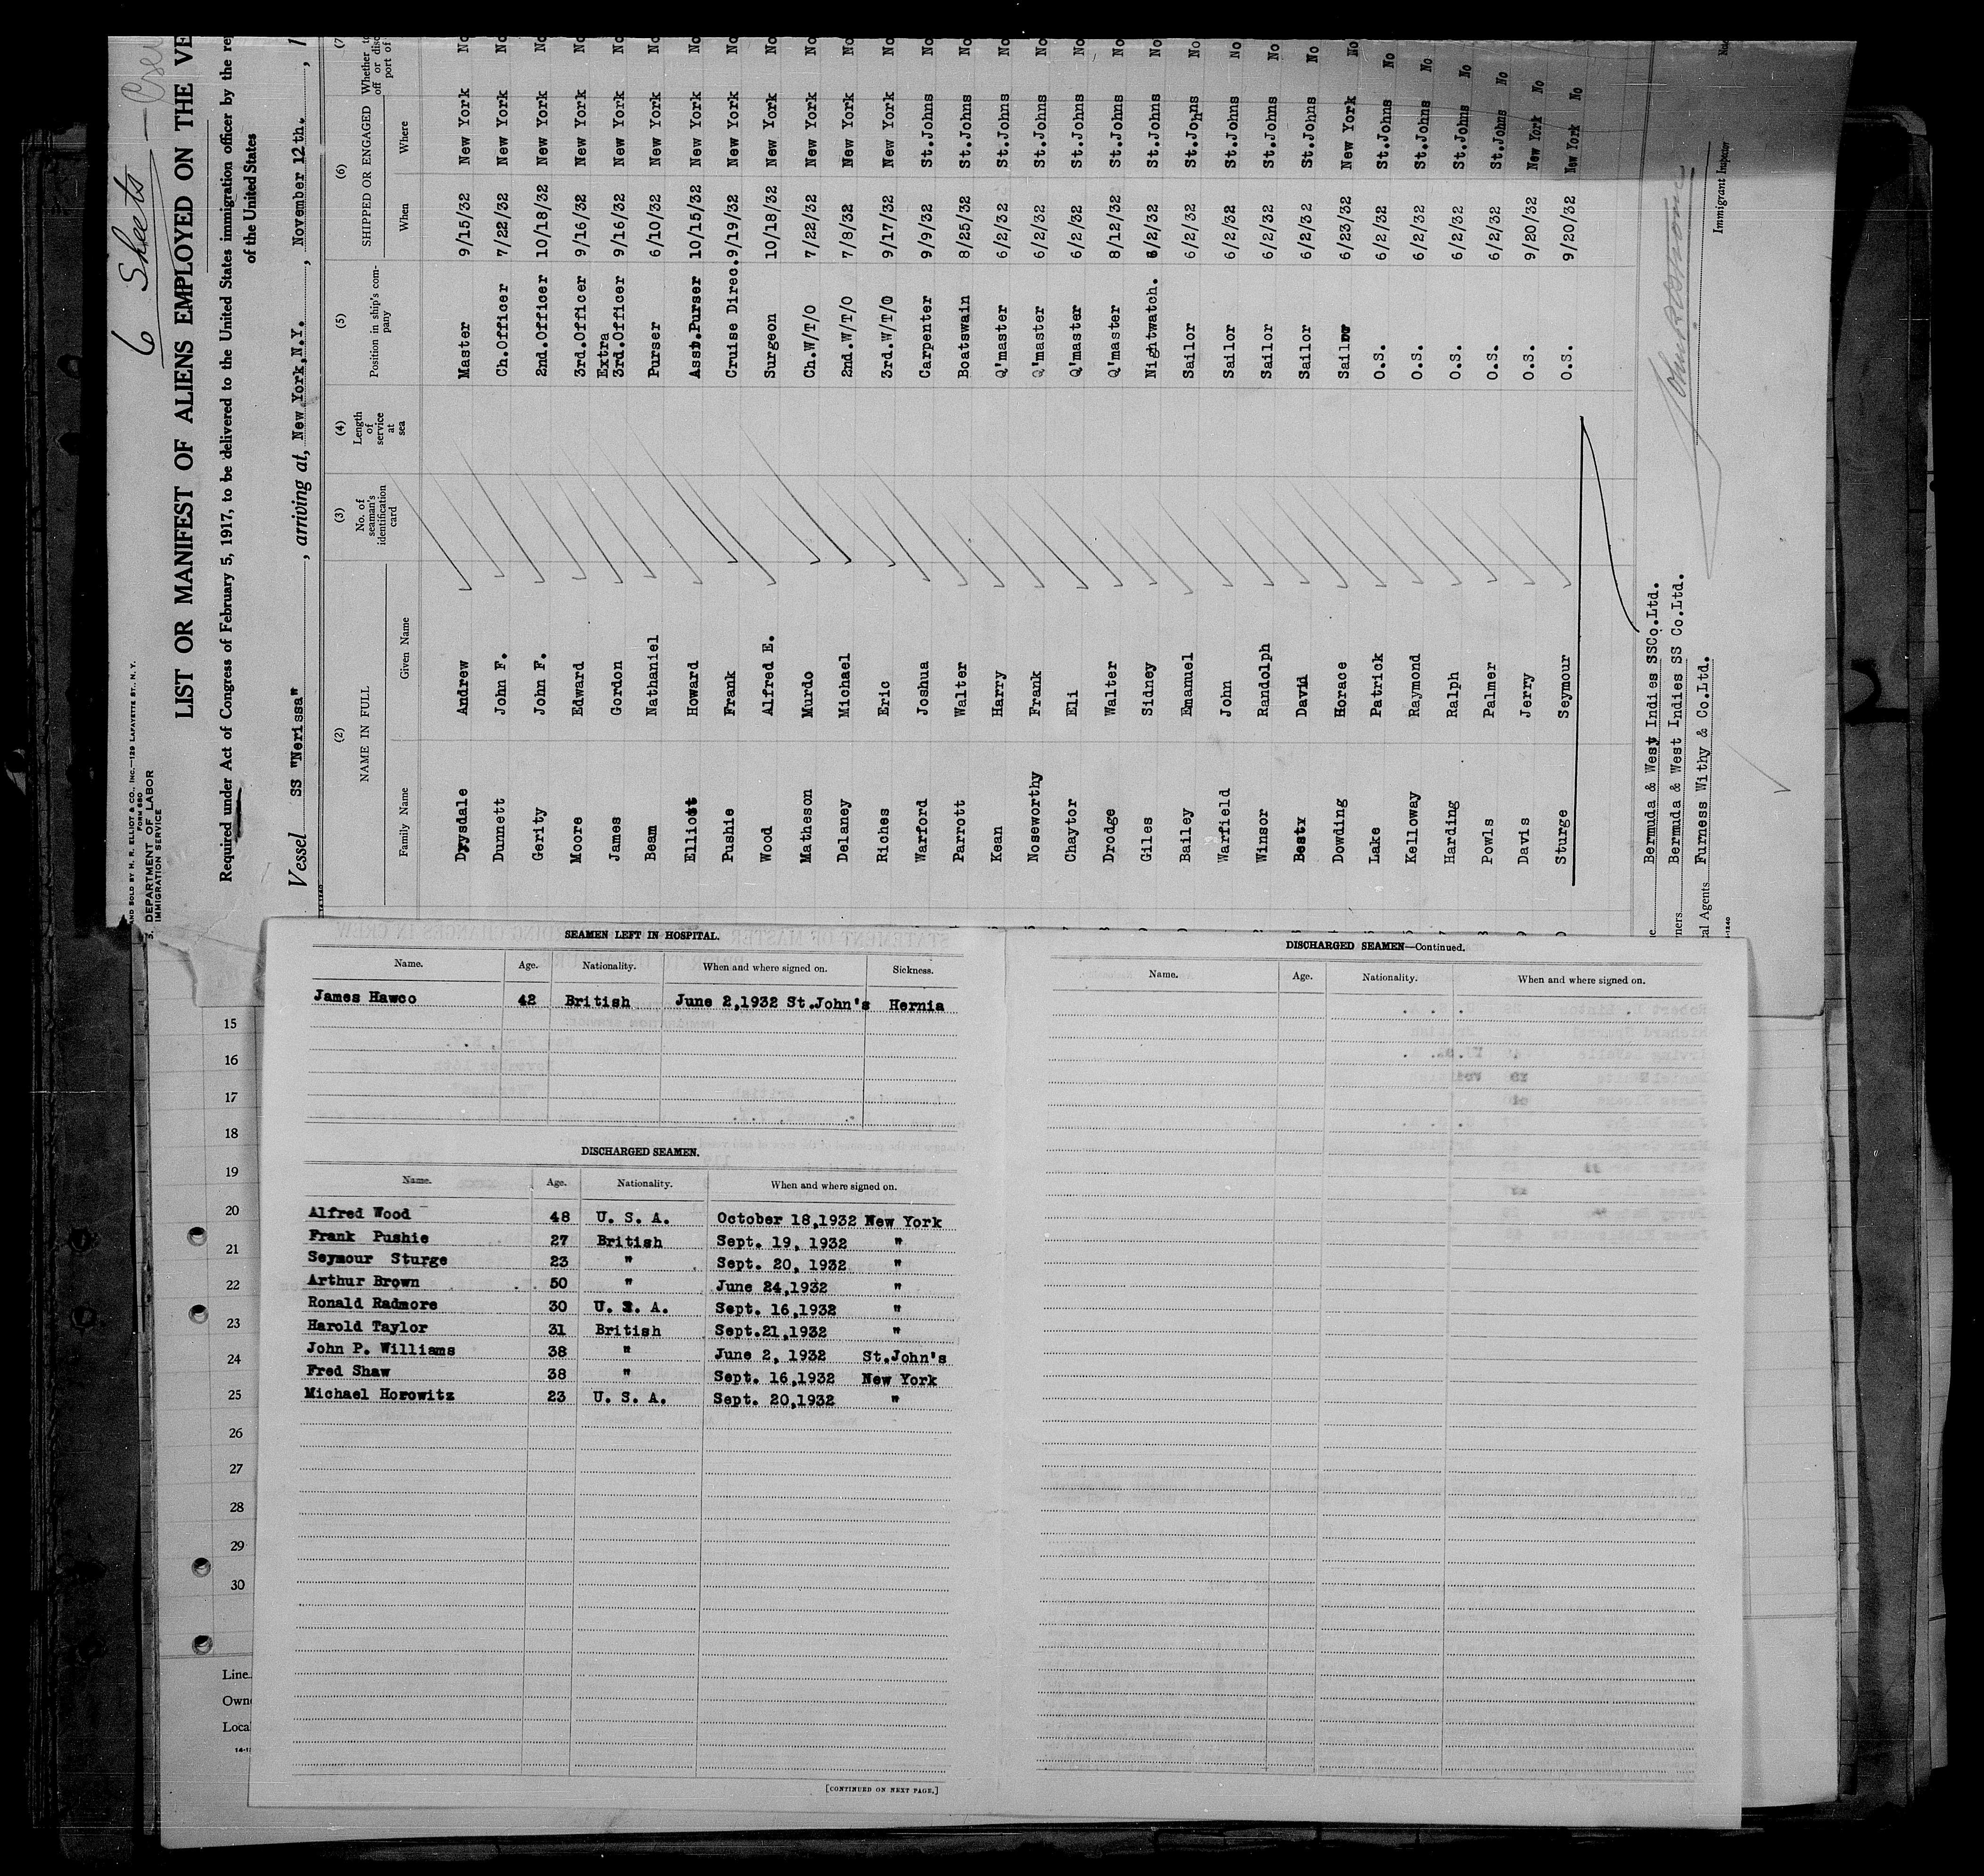 6 Sheets — Crew
AND SOLD BY H. R. ELLIOT & CO., INC.—129 LAFAYETTE ST., N. Y.
FORM 680
DEPARTMENT OF LABOR
IMMIGRATION SERVICE
LIST OR MANIFEST OF ALIENS EMPLOYED ON THE VE
Required under Act of Congress of February 5, 1917, to be delivered to the United States immigration officer by the re
of the United States
Vessel SS "Nerissa", arriving at, New York,N.Y., November 12th.,
(2) (3) (4) (5) (6) (7
NAME IN FULL No. of seaman's identification card Length of service at sea Position in ship's company SHIPPED OR ENGAGED Whether to off or disc port of
Family Name Given Name When Where
Drysdale Andrew Master 9/15/32 New York No
Dunnett John F. Ch.Officer 7/22/32 New York No
Gerity John F. 2nd.Officer 10/18/32 New York No
Moore Edward 3rd.Officer 9/16/32 New York No
James Gordon Extra 3rd.Officer 9/16/32 New York No
Beam Nathaniel Purser 6/10/32 New York No
Elliott Howard Asst.Purser 10/15/32 New York No
Pushie Frank Cruise Direc. 9/19/32 New York No
Wood Alfred E. Surgeon 10/18/32 New York No
Matheson Murdo Ch.W/T/O 7/22/32 New York No
Delaney Michael 2nd.W/T/O 7/8/32 New York No
Riches Eric 3rd.W/T/O 9/17/32 New York No
Warford Joshua Carpenter 9/9/32 St.Johns No
Parrott Walter Boatswain 8/25/32 St.Johns No
Kean Harry Q'master 6/2/32 St.Johns No
Noseworthy Frank Q'master 6/2/32 St.Johns No
Chaytor Eli Q'master 6/2/32 St.Johns No
Drodge Walter Q'master 8/12/32 St.Johns No
Giles Sidney Nightwatch. 6/2/32 St.Johns No
Bailey Emanuel Sailor 6/2/32 St.Johns No
Warfield John Sailor 6/2/32 St.Johns No
Winsor Randolph Sailor 6/2/32 St.Johns No
David Sailor 6/2/32 St.Johns No
Dowding Horace Sailor 6/23/32 New York No
Lake Patrick O.S. 6/2/32 St.Johns No
Kelloway Raymond O.S. 6/2/32 St.Johns No
Harding Ralph O.S. 6/2/32 St.Johns No
Powls Palmer O.S. 6/2/32 St.Johns No
Davis Jerry O.S. 9/20/32 New York No
Sturge Seymour O.S. 9/20/32 New York No
Bermuda & West Indies SSCo.Ltd.
ners Bermuda & West Indies SS Co.Ltd.
al Agents Furness Withy & Co.Ltd.
Immigrant Inspector
SEAMEN LEFT IN HOSPITAL.
Name. Age. Nationality. When and where signed on. Sickness.
James Hawco 42 British June 2,1932 St.John's Hernia
DISCHARGED SEAMEN.
Name. Age. Nationality. When and where signed on.
Alfred Wood 48 U. S. A. October 18,1932 New York
Frank Pushie 27 British Sept. 19, 1932 "
Seymour Sturge 23 " Sept. 20, 1932 "
Arthur Brown 50 " June 24,1932 "
Ronald Radmore 30 U. S. A. Sept. 16,1932 "
Harold Taylor 31 British Sept.21,1932 "
John P. Williams 38 " June 2, 1932 St.John's
Fred Shaw 38 " Sept. 16,1932 New York
Michael Horowitz 23 U. S. A. Sept. 20,1932 "
[CONTINUED ON NEXT PAGE.]
DISCHARGED SEAMEN—Continued.
Name. Age. Nationality. When and where signed on.
15
16
17
18
19
20
21
22
23
24
25
26
27
28
29
30
Line
Own
Loca
2